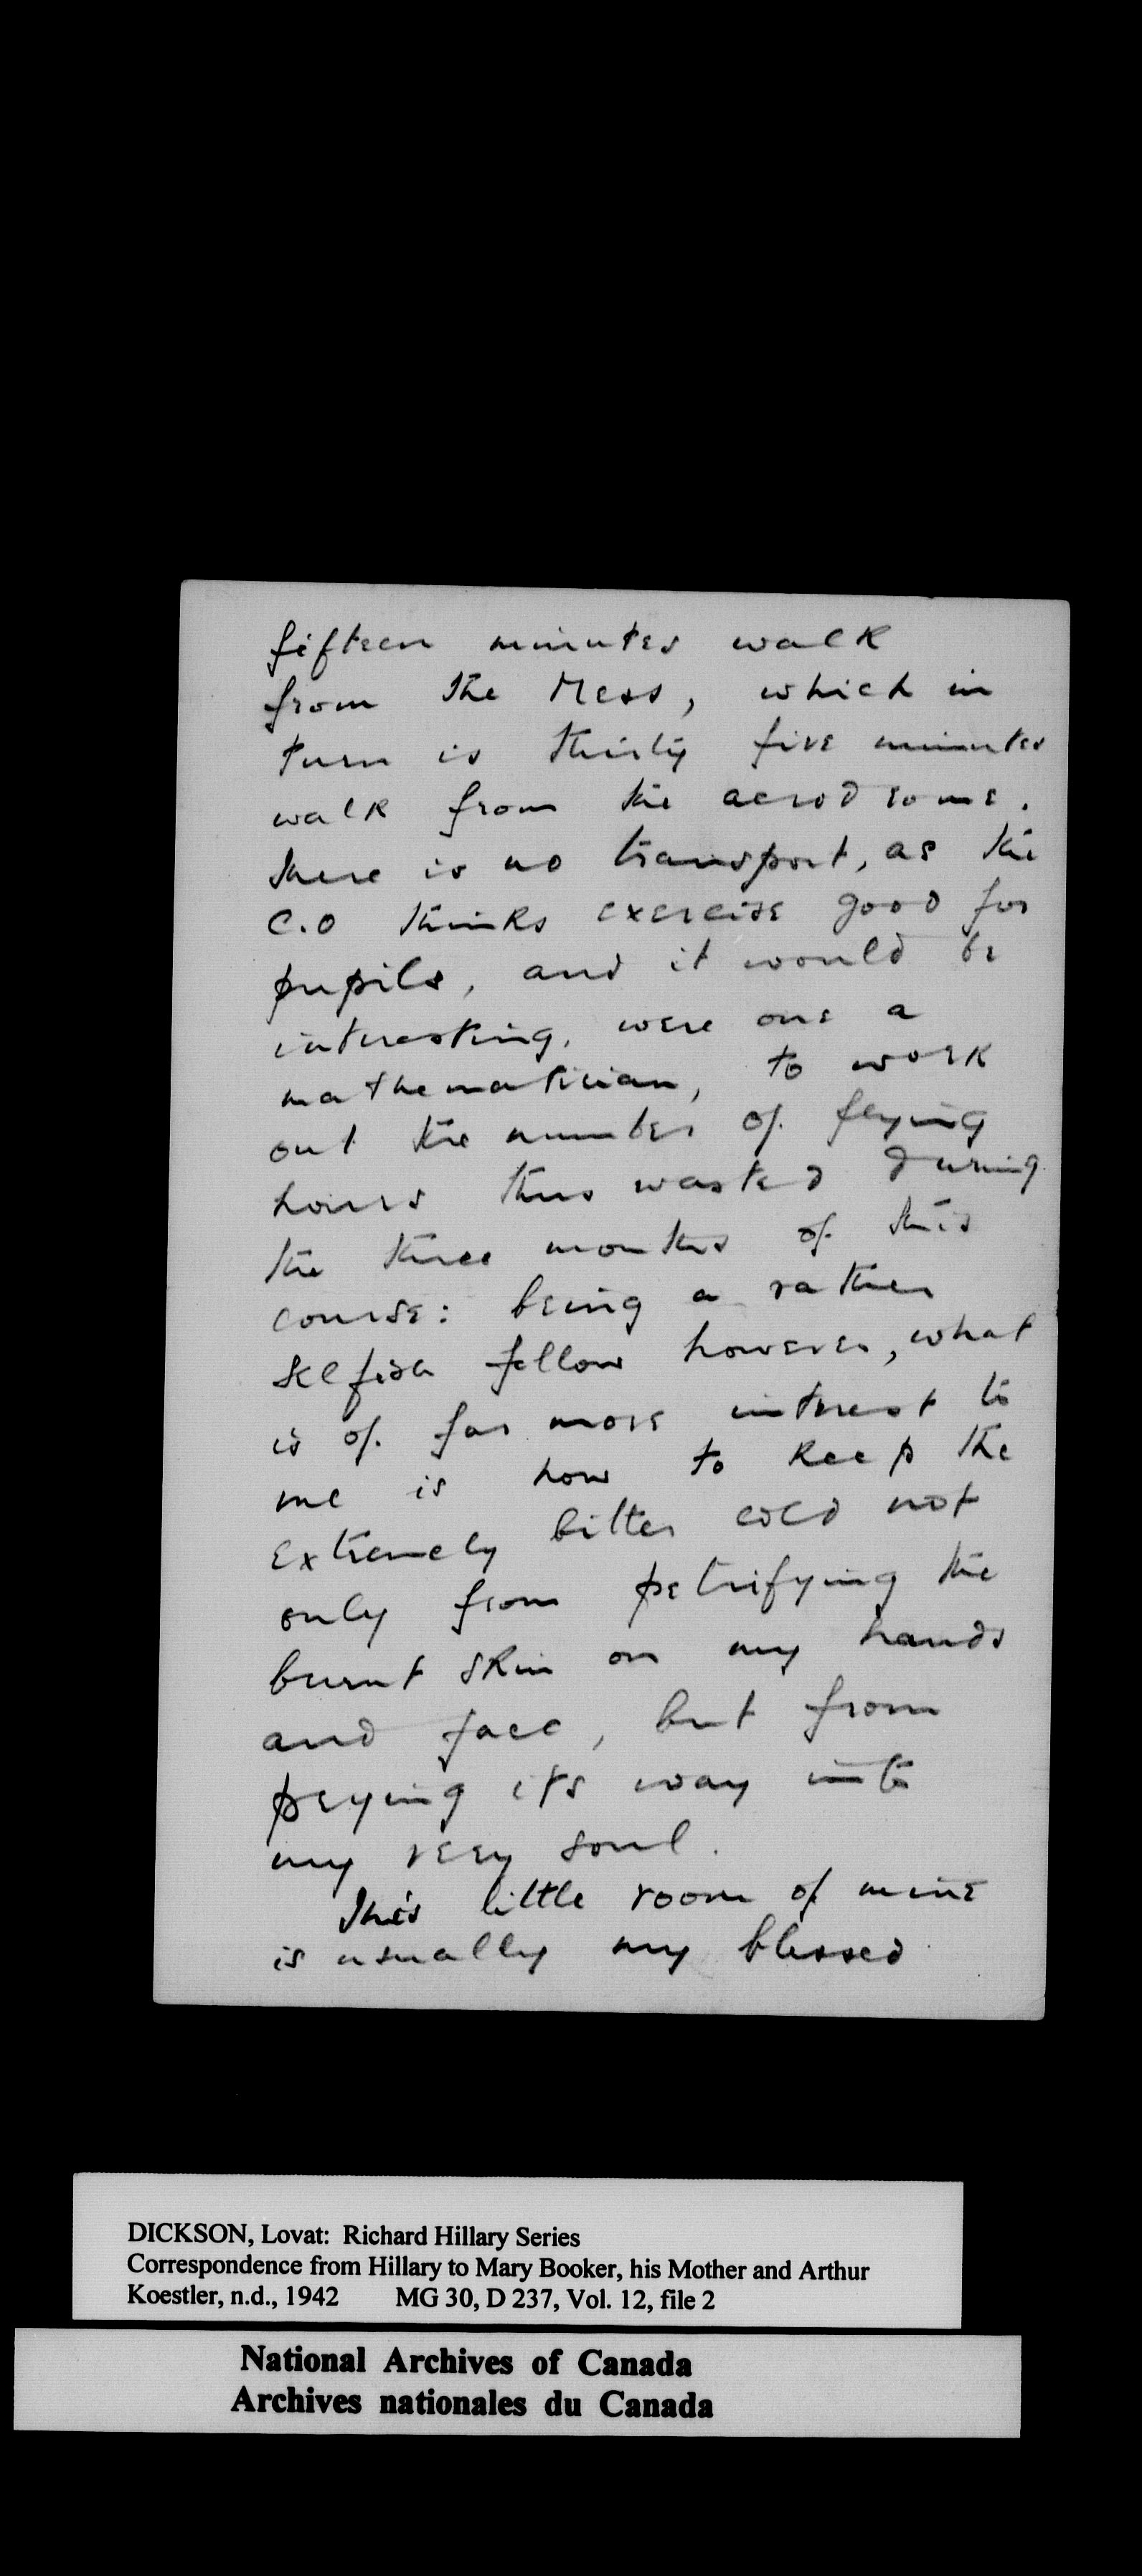 fifteen minutes walk
from the Mess, which in
turn is thirty five minutes
walk from the aerodrome.
There is no transport, as the
C.O thinks exercise good for
pupils, and it would be
interesting, were one a
mathematician, to work
out the number of flying
hours thus wasted during
the three months of this
course: being a rather
selfish fellow however, what
is of far more interest to
me is how to keep the
extremely bitter cold not
only from petrifying the
burnt skin on my hands
and face, but from
prying it's way into
my very soul.
This little room of mine
is usually my blessed
DICKSON, Lovat: Richard Hillary Series
Correspondence from Hillary to Mary Booker, his Mother and Arthur
Koestler, n.d., 1942 MG 30, D 237, Vol. 12, file 2
National Archives of Canada
Archives nationales du Canada